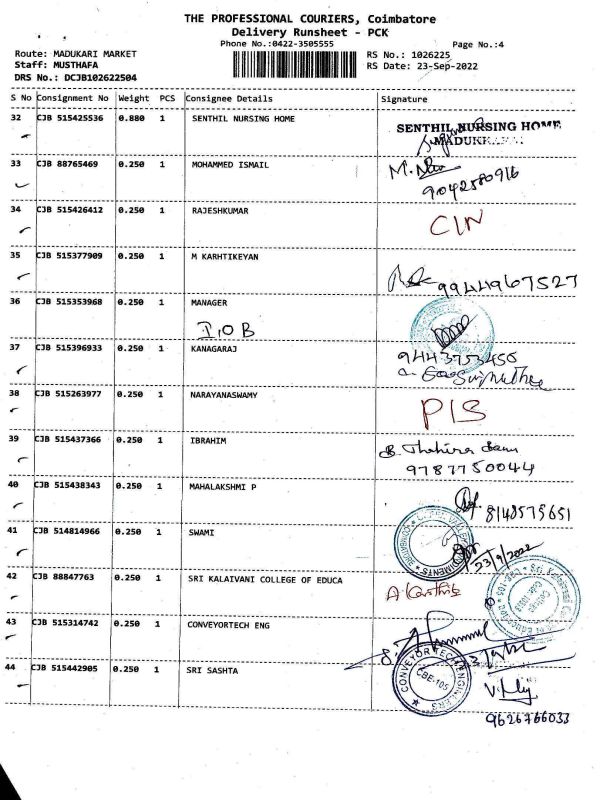 THE PROFESSIONAL COURIERS, Coimbatore
Delivery Runsheet - PCK
Phone No.:0422-3505555 Page No.:4
Route: MADUKARI MARKET RS No.: 1026225
Staff: MUSTHAFA RS Date: 23-Sep-2022
DRS No.: DCJB102622504
S No Consignment No Weight PCS Consignee Details Signature
32 CJB 515425536 0.880 1 SENTHIL NURSING HOME
SENTHIL NURSING HOME
33 CJB 88765469 0.250 1 MOHAMMED ISMAIL
9042580916
34 CJB 515426412 0.250 1 RAJESHKUMAR
C/N
35 CJB 515377909 0.250 1 M KARHTIKEYAN
9944967527
36 CJB 515353968 0.250 1 MANAGER
I.O B
37 CJB 515396933 0.250 1 KANAGARAJ
9443753450
38 CJB 515263977 0.250 1 NARAYANASWAMY
P/S
39 CJB 515437366 0.250 1 IBRAHIM
B. Thahira Banu
9787750044
40 CJB 515438343 0.250 1 MAHALAKSHMI P
8148575651
41 CJB 514814966 0.250 1 SWAMI
23/9/2022
42 CJB 88847763 0.250 1 SRI KALAIVANI COLLEGE OF EDUCA
43 CJB 515314742 0.250 1 CONVEYORTECH ENG
CONVEYORTECH ENGINEERS
CBE-105
44 CJB 515442905 0.250 1 SRI SASHTA
9626766033